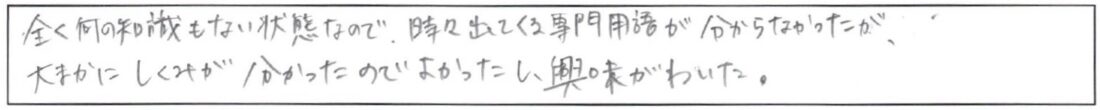 全く何の知識もない状態なので、時々出てくる専門用語が分からなかったが、
大まかにしくみが分かったのでよかったし、興味がわいた。